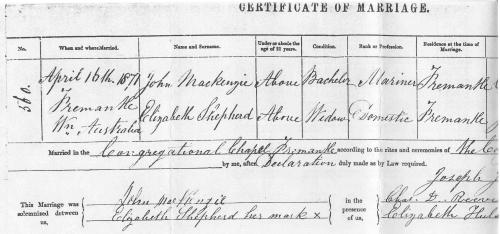 CERTIFICATE OF MARRIAGE.
No. When and where Married. Name and Surname. Under or above the age of 21 years. Condition. Rank or Profession. Residence at the time of Marriage.
560. April 16th 1871 John Mackenzie Above Bachelor Mariner Fremantle
Fremantle Elizabeth Shepherd Above Widow Domestic Fremantle
Wn. Australia
Married in the Congregational Chapel Fremantle according to the rites and ceremonies of the
by me, after Declaration duly made as by Law required.
Joseph
This Marriage was solemnized between us, John Mackenzie in the presence of us,
Elizabeth Shepherd her mark x Elizabeth